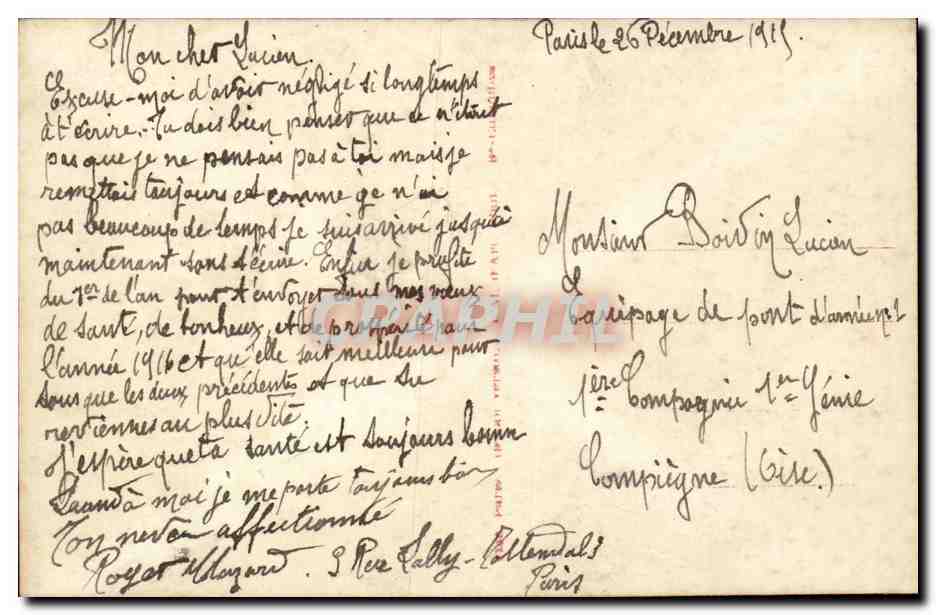 Paris le 26 Décembre 1915.
Mon cher Lucien.
Excuse-moi d'avoir négligé si longtemps
à t'écrire. Tu dois bien penser que ce n'était
pas que je ne pensais pas à toi mais je
remettais toujours et comme je n'ai
pas beaucoup de temps je suis arrivé jusqu'à
maintenant sans t'écrire. Enfin je profite
du 1er de l'an pour t'envoyer tous mes vœux
de santé, de bonheur, et de prospérité pour
l'année 1916 et qu'elle soit meilleure pour
tous que les deux précédentes et que tu
reviennes au plus vite.
J'espère que ta santé est toujours bonne
Quand à moi je me porte toujours bien
Ton neveu affectionné
Roger 9 Rue Lally-Tollendal
Paris
Monsieur Boivin Lucien
Equipage de pont d'armée n°1
1ère Compagnie 1er Génie
Compiègne (Oise.)
CARAPHIL